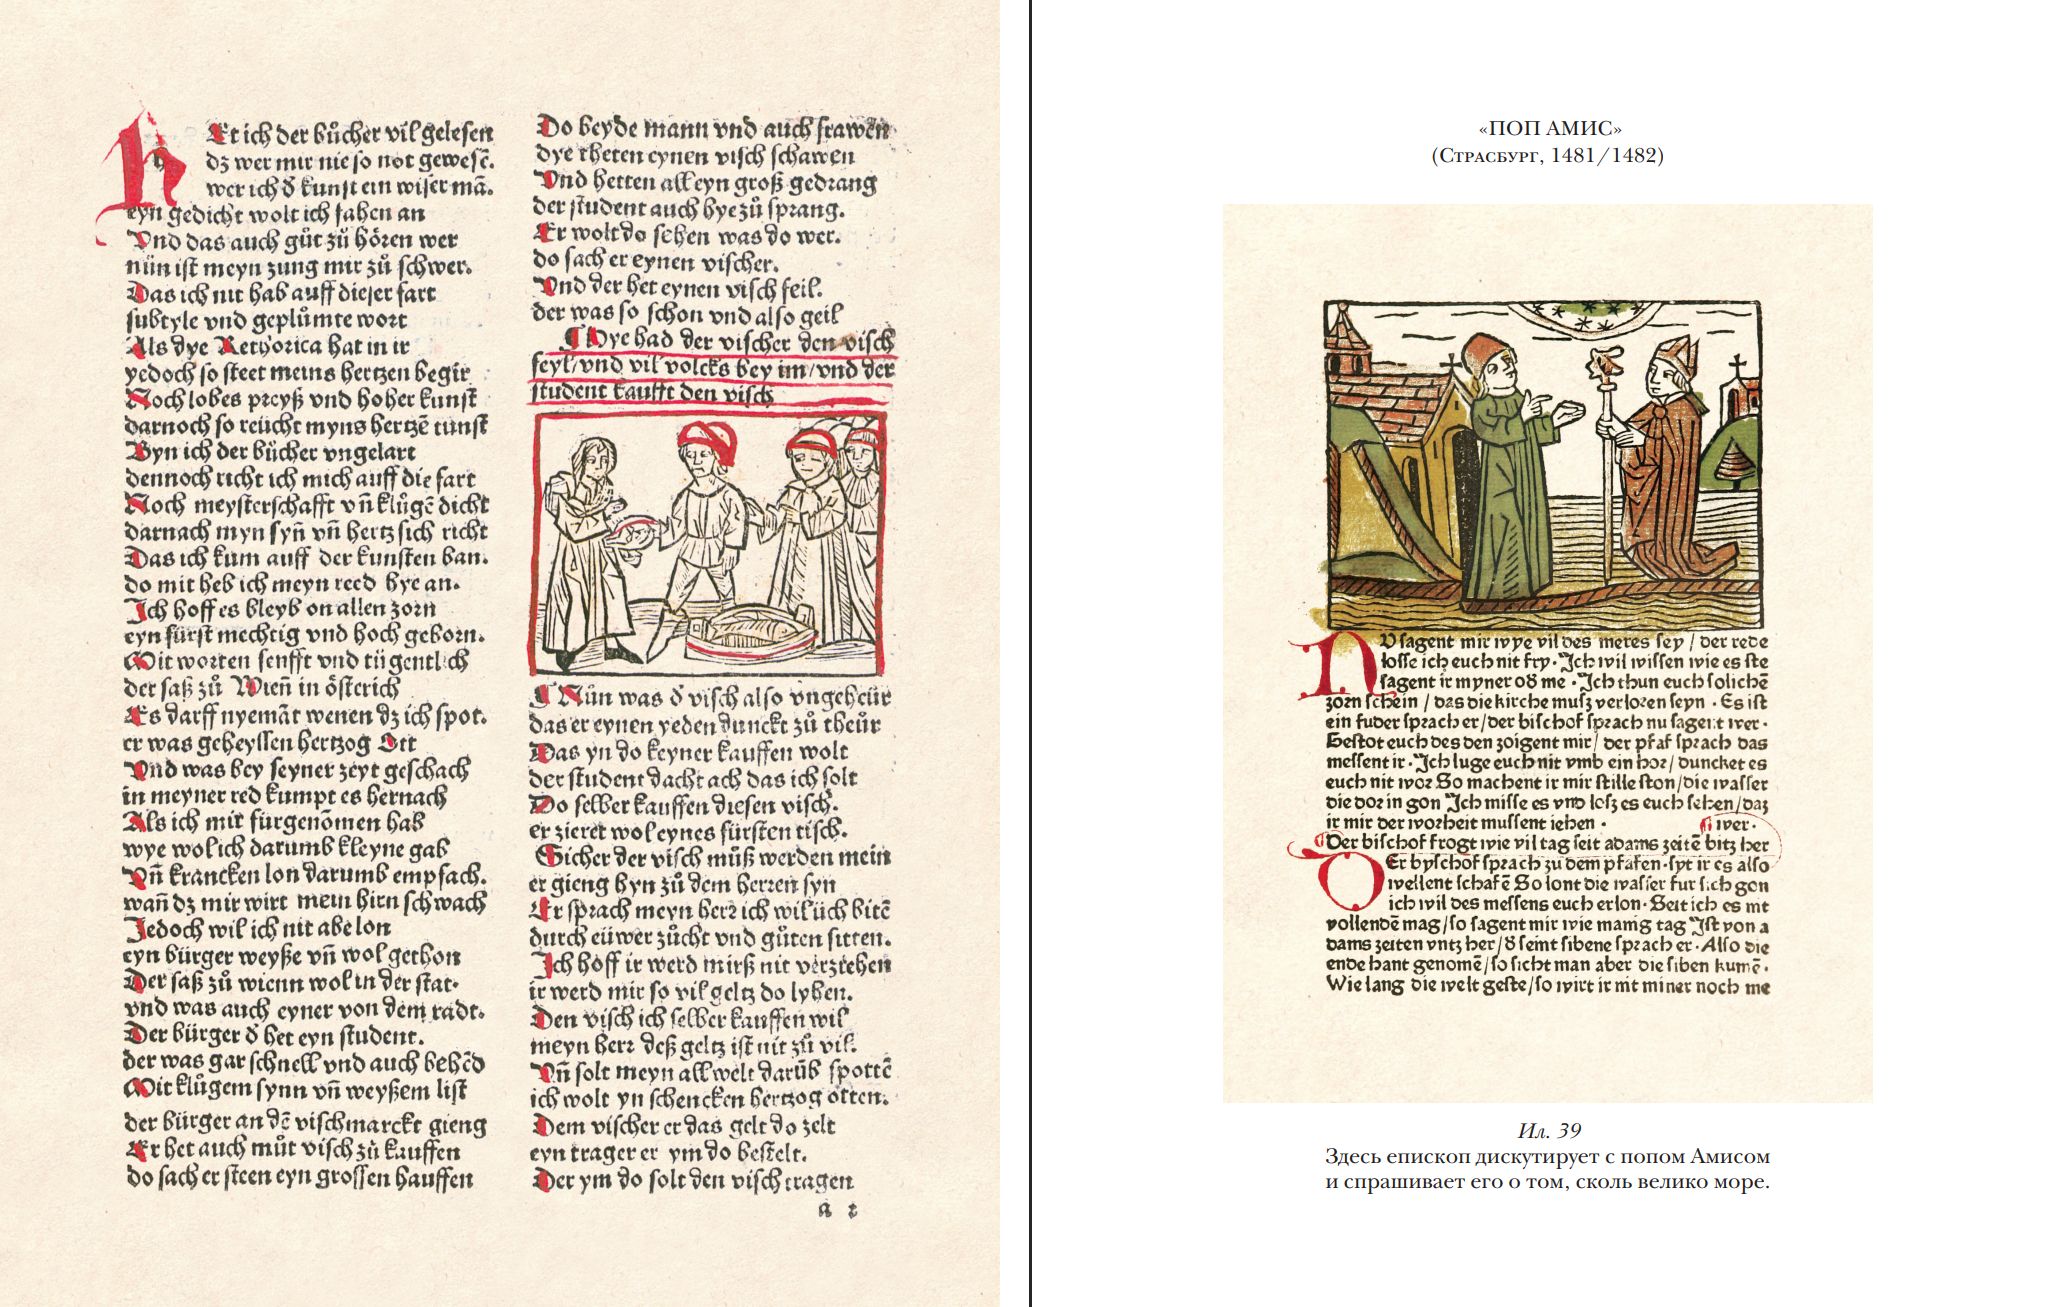 Het ich der bůcher vil gelesen
dz wer mir nie so not gewesē.
wer ich d̕ kunst ein wiser mā.
eyn gedicht wolt ich fahen an
Vnd das auch gůt zů hören wer
nün ist meyn zung mir zů schwer.
Das ich nit hab auff dieser fart
subtyle vnd geplůmte wort
Als dye Rethorica hat in ir
yedoch so steet meins hertzen begir
Noch lobes preyß vnd hoher kunst
darnoch so reücht myns hertzē tunst
Byn ich der bůcher vngelart
dennoch richt ich mich auff die fart
Noch meysterschafft vn̄ klůgē dicht
darnach myn syn̄ vn̄ hertz sich richt
Das ich kum auff der kunsten ban.
do mit heb ich meyn reed hye an.
Ich hoff es bleyb on allen zorn
eyn fürst mechtig vnd hoch geborn.
Mit worten senfft vnd tügentlich
der saß zů Wien̄ in österich
Es darff nyemāt wenen dz ich spot.
er was geheyssen hertzog Ott
Vnd was bey seyner zeyt geschach
in meyner red kumpt es hernach
Als ich mir fürgenōmen hab
wye wol ich darumb kleyne gab
Vn̄ krancken lon darumb empfach.
wan̄ dz mir wirt mein hirn schwach
Jedoch wil ich nit abe lon
eyn bürger weyße vn̄ wol gethon
Der saß zů wienn wol in der stat.
vnd was auch eyner von dem radt.
Der bürger d̕ het eyn student.
der was gar schnell vnd auch behēd
Mit klůgem synn vn̄ weyßem list
der bürger an dē vischmarckt gieng
Er het auch můt visch zů kauffen
do sach er steen eyn grossen hauffen
Do beyde mann vnd auch frawen
dye theten eynen visch schawen
Vnd hetten all eyn groß gedrang
der student auch hye zů sprang.
Er wolt do sehen was do wer.
do sach er eynen vischer.
Vnd der het eynen visch feil.
der was so schon vnd also geil
¶ Hye had der vischer den visch
feyl/vnd vil volcks bey im/vnd der
student kaufft den visch
¶ Nün was d̕ visch also vngeheür
das er eynen yeden dunckt zů theür
Das yn do keyner kauffen wolt
der student dacht ach das ich solt
Do selber kauffen diesen visch.
er zieret wol eynes fürsten tisch.
Sicher der visch můß werden mein
er gieng hyn zů dem herren syn
Er sprach meyn herz ich wil üch bitē
durch eüwer zücht vnd gůten sitten.
Ich hoff ir werd mirß nit verziehen
ir werd mir so vil geltz do lyhen.
Den visch ich selber kauffen wil
meyn herz deß geltz ist nit zů vil.
Vn̄ solt meyn all welt darūb spottē
ich wolt yn schencken hertzog otten.
Dem vischer er das gelt do zelt
eyn trager er ym do bestelt.
Der ym do solt den visch tragen
a 2
«ПОП АМИС»
(Страсбург, 1481/1482)
NV sagent mir wye vil des meres sey / der rede
losse ich euch nit fry. Ich wil wissen wie es ste
sagent ir myner od̕ me. Ich thun euch solichē
zorn schein / das die kirche musz verloren seyn. Es ist
ein fuder sprach er / der bischof sprach nu sagent wer.
Gestot euch des den zoigent mir / der pfaf sprach das
messent ir. Ich luge euch nit vmb ein hor / duncket es
euch nit wor So machent ir mir stille ston / die wasser
die dor in gon Ich misse es vnd losz es euch sehen / daz
ir mir der worheit mussent iehen. ¶ wer.
¶ Der bischof frogt wie vil tag seit adams zeitē bitz her
DEr byschof sprach zu dem pfafen. syt ir es also
wellent schafē So lont die wasser fur sich gon
ich wil des messens euch erlon. Seit ich es nit
vollendē mag / so sagent mir wie manig tag Ist von a
dams zeiten vntz her / d̕ seint sibene sprach er. Also die
ende hant genomē / so sicht man aber die siben kumē.
Wie lang die welt geste / so wirt ir nit miner noch me
Ил. 39
Здесь епископ дискутирует с попом Амисом
и спрашивает его о том, сколь велико море.